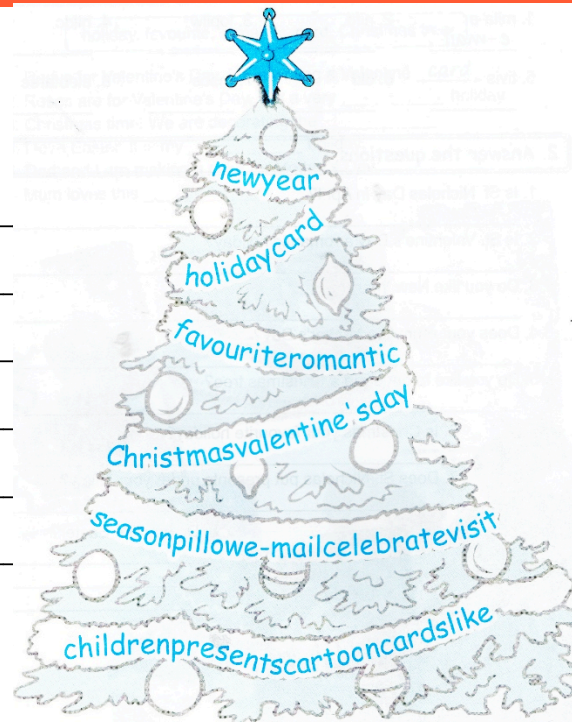 newyear
holidaycard
favouriteromantic
Christmasvalentine'sday
seasonpillowe-mailcelebratevisit
childrenpresentscartooncardslike